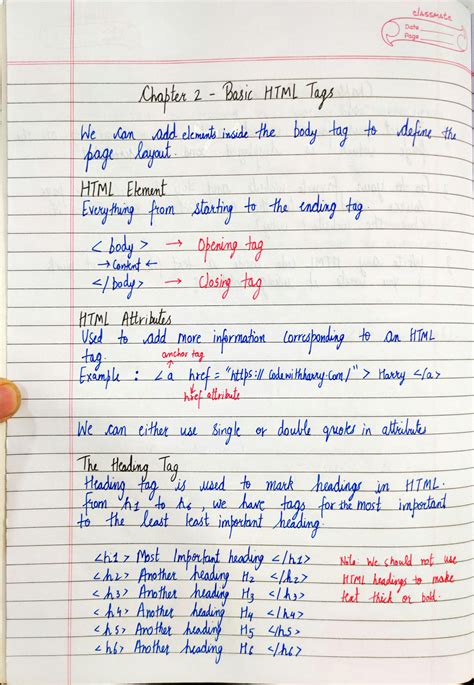 classmate
Date
Page
Chapter 2 - Basic HTML Tags
We can add elements inside the body tag to define the
page layout.
HTML Element
Everything from starting to the ending tag.
< body > → Opening tag
→ Content ←
</body> → Closing tag
HTML Attributes
Used to add more information corresponding to an HTML
tag.
anchor tag
Example : <a href = "https://codewithharry.com/" > Harry </a>
href attribute
We can either use single or double quotes in attributes
The Heading Tag
Heading tag is used to mark headings in HTML.
From h1 to h6, we have tags for the most important
to the least least important heading.
<h1> Most Important heading </h1>
<h2> Another heading H2 </h2>
<h3> Another heading H3 </h3>
<h4> Another heading H4 </h4>
<h5> Another heading H5 </h5>
<h6> Another heading H6 </h6>
Note: We should not use
HTML headings to make
text thick or bold.